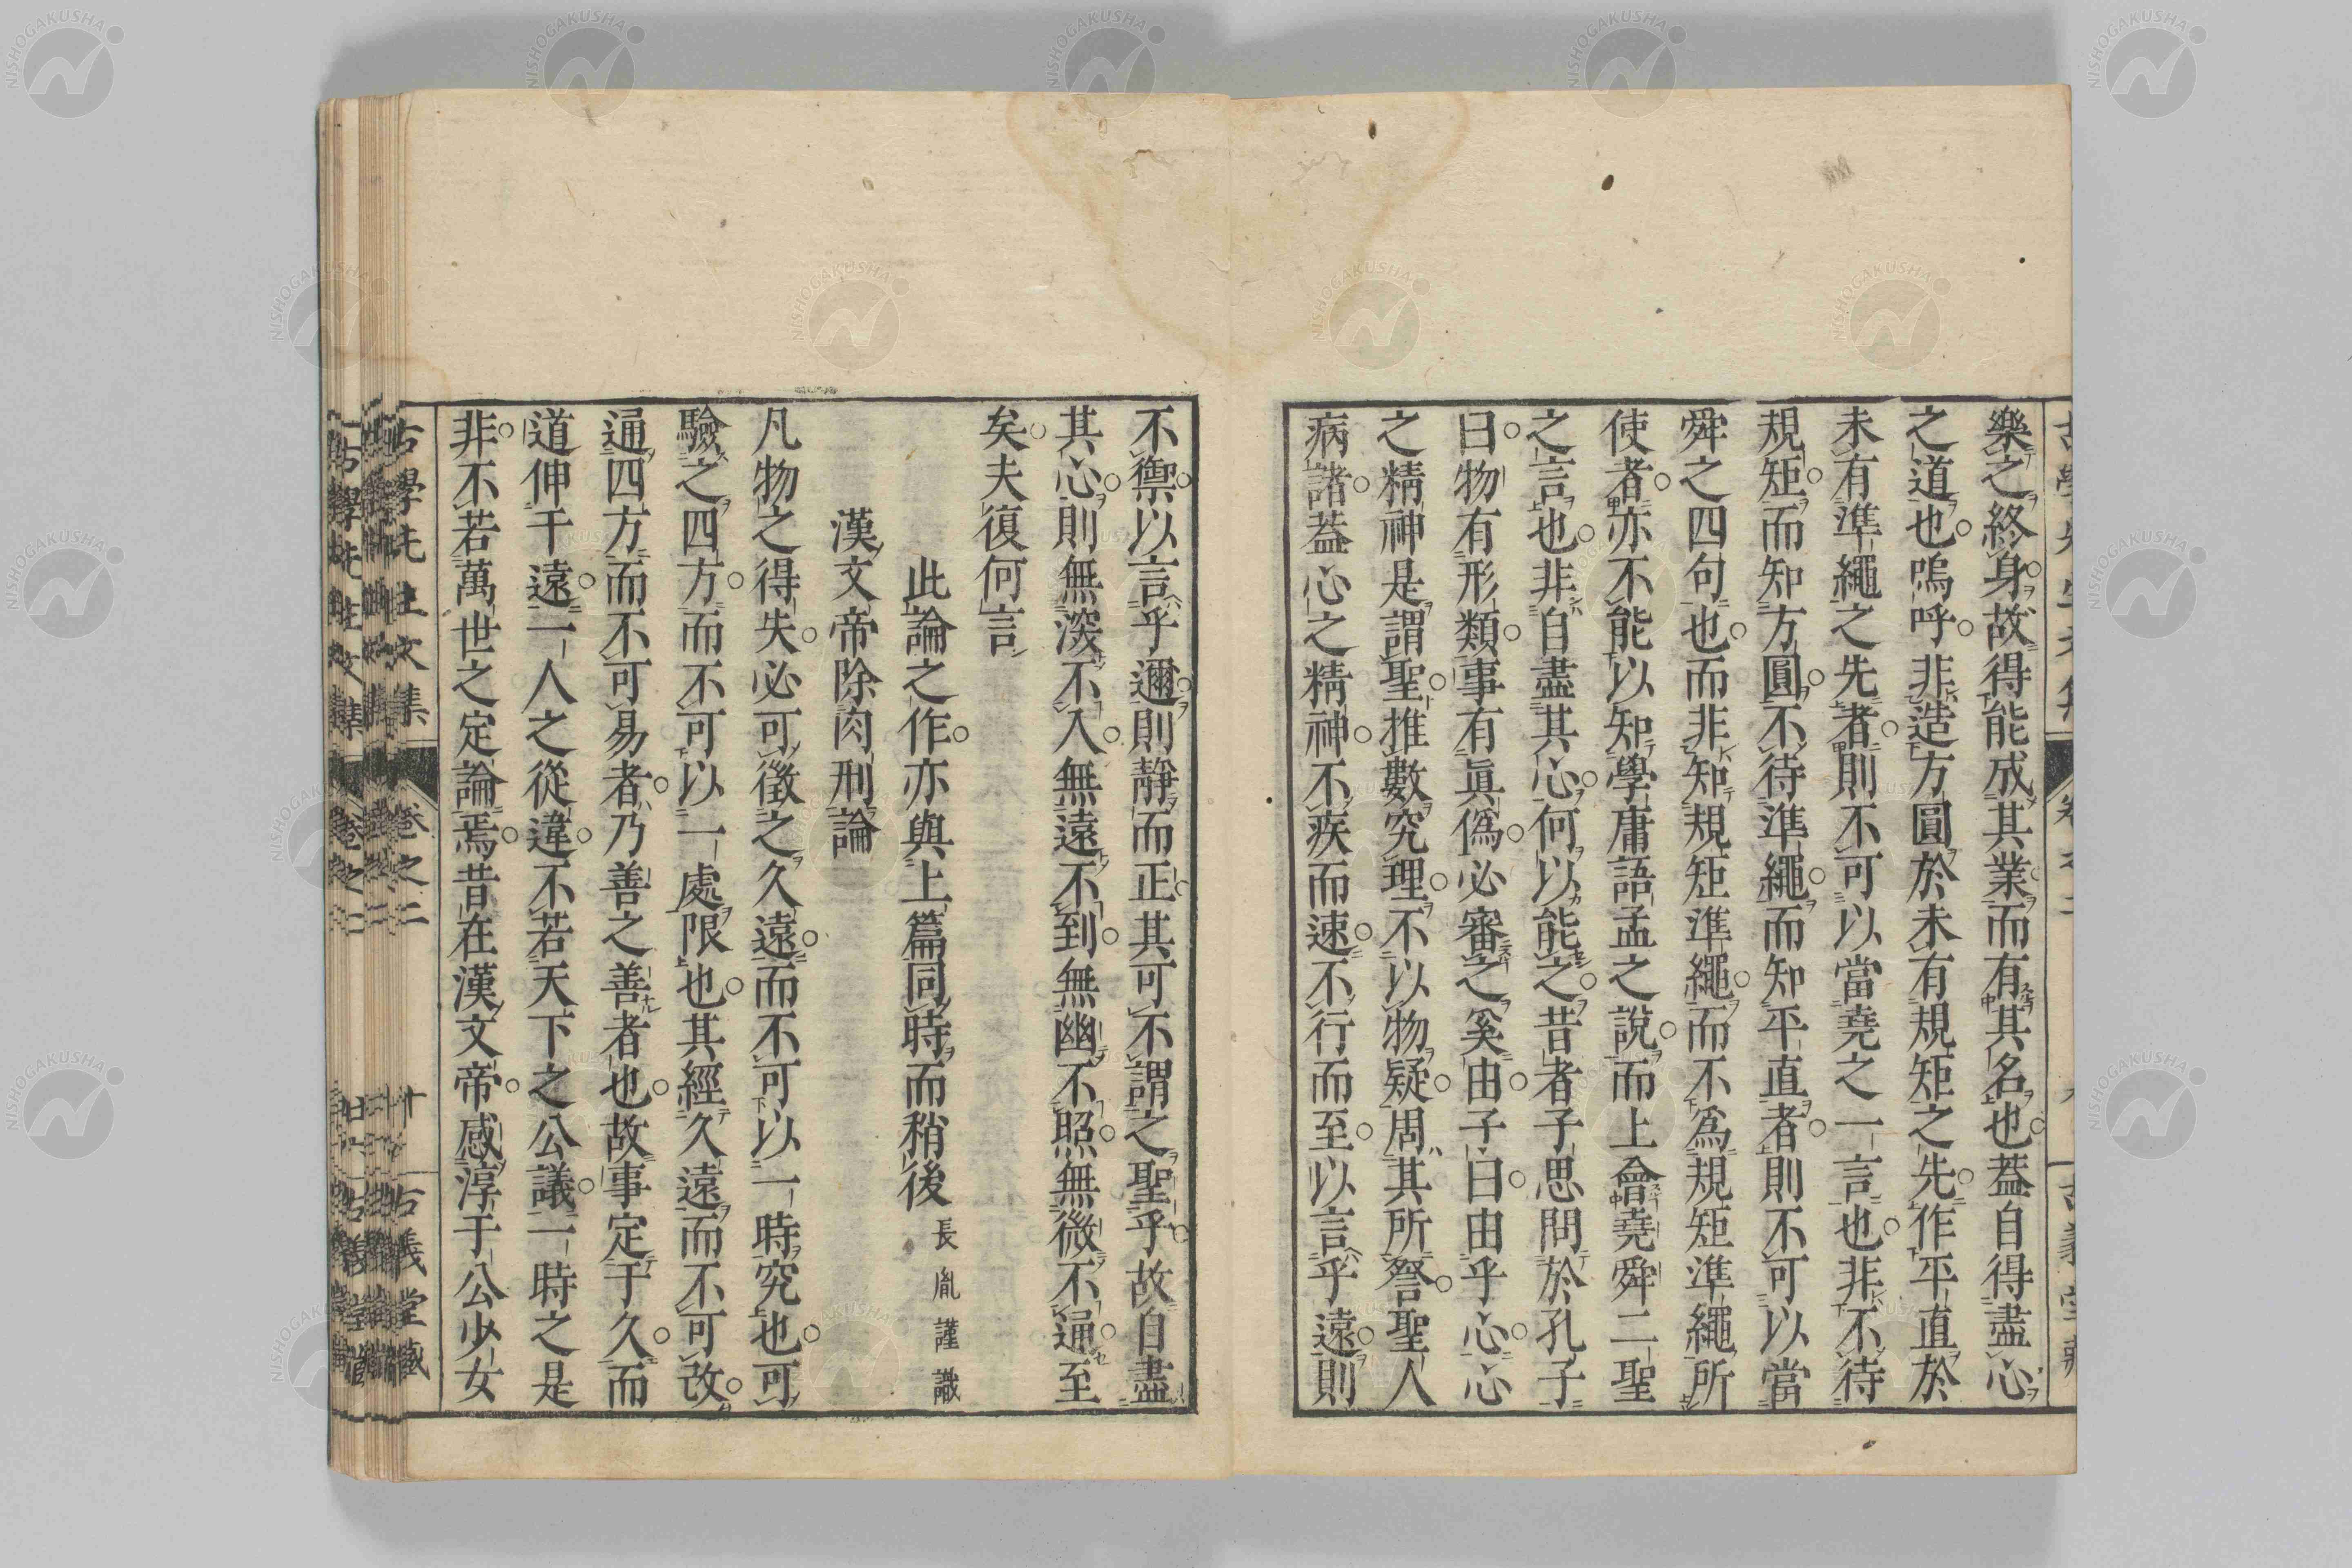 樂之終身故得能成其業而有其名也蓋自得盡心
之道也嗚呼非造方圓於未有規矩之先作平直於
未有準繩之先者則不可以當堯之一言也非不待
規矩而知方圓不待準繩而知平直者則不可以當
舜之四句也而非知規矩準繩而不爲規矩準繩所
使者亦不能以知學庸語孟之說而上會堯舜二聖
之言也非自盡其心何以能之昔者子思問於孔子
曰物有形類事有眞僞必審之奚由子曰由乎心心
之精神是謂聖推數究理不以物疑周其所詧聖人
病諸蓋心之精神不疾而速不行而至以言乎遠則
不禦以言乎邇則靜而正其可不謂之聖乎故自盡
其心則無深不入無遠不到無幽不照無微不通至
矣夫復何言
此論之作亦與上篇同時而稍後 長胤謹識
漢文帝除肉刑論
凡物之得失必可徵之久遠而不可以一時究也可
驗之四方而不可以一處限也其經久遠而不可改
通四方而不可易者乃善之善者也故事定于久而
道伸于遠一人之從違不若天下之公議一時之是
非不若萬世之定論焉昔在漢文帝感淳于公少女
古學先生文集 卷之二 十 古義堂藏
NISHOGAKUSHA